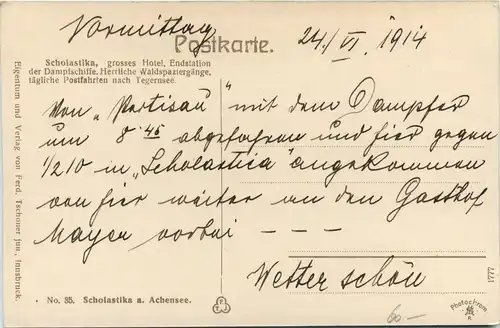 Vormittag 24/VI, 1914
Postkarte.
Scholastika, grosses Hotel, Endstation
der Dampfschiffe. Herrliche Waldspaziergänge,
tägliche Postfahrten nach Tegernsee.
Von „Pertisau" mit dem Dampfer
um 8 45 abgefahren und hier gegen
1/2 10 in „Scholastica" angekommen
von hier weiter an den Gasthof
Mayer vorbei — — —
Wetter schön
Eigentum und Verlag von Ferd. Tschoner jun., Innsbruck.
No. 35. Scholastika a. Achensee.
Photochrom
1777
60.-